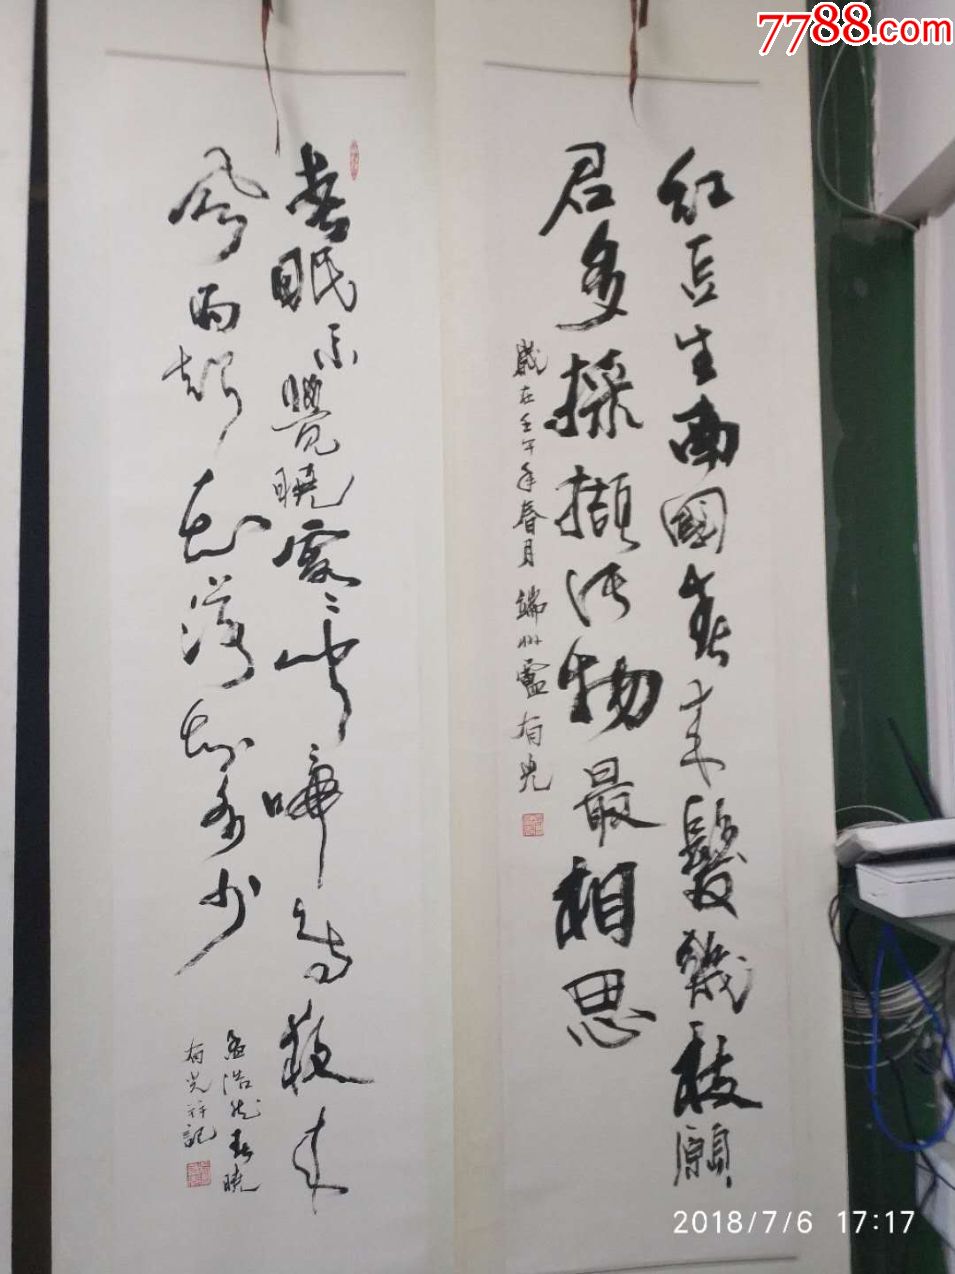 7788.com
紅豆生南國春来發幾枝願
君多採擷此物最相思
歲在壬午年春月 端州盧有光
春眠不覺曉處々聞啼鳥夜来
風雨聲花落知多少
孟浩然春曉
有光并記
2018/7/6 17:17